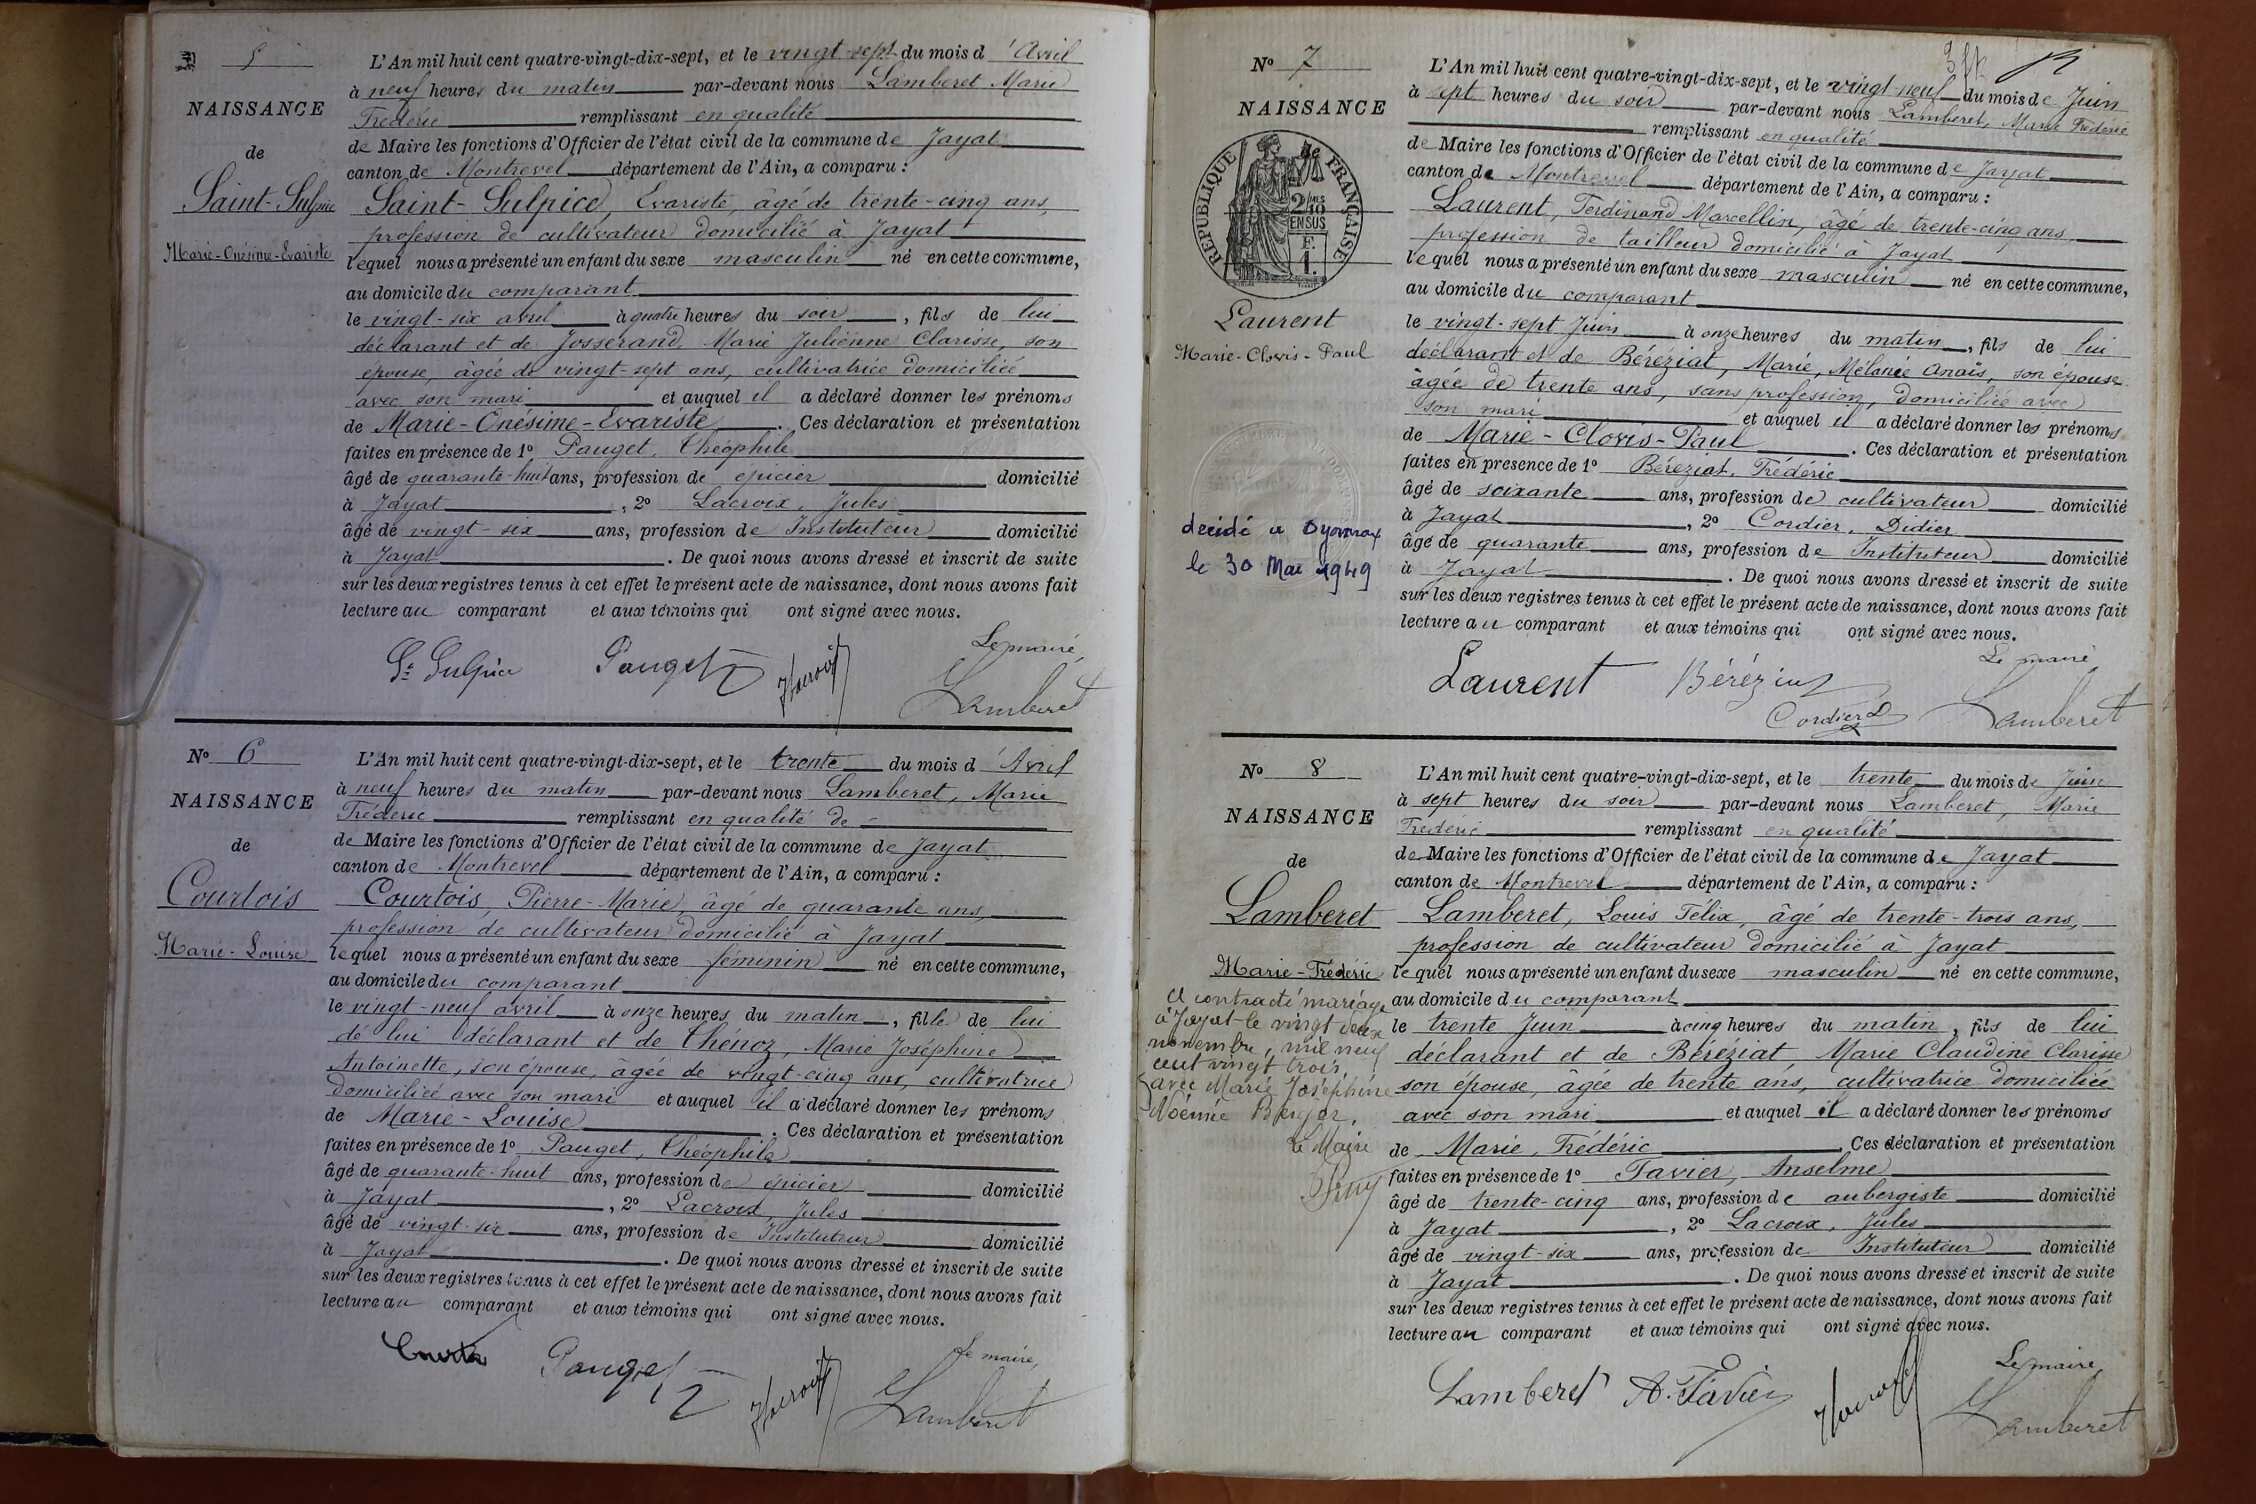 5
NAISSANCE
de
Saint-Sulpice
Marie-Onésime-Evariste
L'An mil huit cent quatre-vingt-dix-sept, et le vingt-sept du mois d'Avril
à neuf heures du matin par-devant nous Lamberet Marie
Frédéric remplissant en qualité
de Maire les fonctions d'Officier de l'état civil de la commune de Jayat
canton de Montrevel département de l'Ain, a comparu :
Saint-Sulpice, Evariste, âgé de trente-cinq ans,
profession de cultivateur domicilié à Jayat
lequel nous a présenté un enfant du sexe masculin né en cette commune,
au domicile du comparant
le vingt-six avril à quatre heures du soir, fils de lui
déclarant et de Josserand Marie Julienne Clarisse, son
épouse, âgée de vingt-sept ans, cultivatrice domiciliée
avec son mari et auquel il a déclaré donner les prénoms
de Marie-Onésime-Evariste. Ces déclaration et présentation
faites en présence de 1º Pauget, Théophile
âgé de quarante-huit ans, profession de épicier domicilié
à Jayat, 2º Lacroix, Jules
âgé de vingt-six ans, profession de Instituteur domicilié
à Jayat. De quoi nous avons dressé et inscrit de suite
sur les deux registres tenus à cet effet le présent acte de naissance, dont nous avons fait
lecture au comparant et aux témoins qui ont signé avec nous.
Le maire,
St Sulpice Pauget JLacroix Lamberet
Nº 6
NAISSANCE
de
Courtois
Marie-Louise
L'An mil huit cent quatre-vingt-dix-sept, et le trente du mois d'Avril
à neuf heures du matin par-devant nous Lamberet, Marie
Frédéric remplissant en qualité de
de Maire les fonctions d'Officier de l'état civil de la commune de Jayat
canton de Montrevel département de l'Ain, a comparu :
Courtois, Pierre-Marie, âgé de quarante ans,
profession de cultivateur domicilié à Jayat
lequel nous a présenté un enfant du sexe féminin né en cette commune,
au domicile du comparant
le vingt-neuf avril à onze heures du matin, fille de lui
de lui déclarant et de Thénoz, Marie Joséphine
Antoinette, son épouse, âgée de vingt-cinq ans, cultivatrice
domiciliée avec son mari et auquel il a déclaré donner les prénoms
de Marie-Louise. Ces déclaration et présentation
faites en présence de 1º Pauget, Théophile
âgé de quarante-huit ans, profession de épicier domicilié
à Jayat, 2º Lacroix, Jules
âgé de vingt-six ans, profession de Instituteur domicilié
à Jayat. De quoi nous avons dressé et inscrit de suite
sur les deux registres tenus à cet effet le présent acte de naissance, dont nous avons fait
lecture au comparant et aux témoins qui ont signé avec nous.
Le maire,
Pauget JLacroix Lamberet
Nº 7
NAISSANCE
de
RÉPUBLIQUE FRANÇAISE
2/10 EN SUS
F.
1.
Laurent
Marie-Clovis-Paul
décédé a Oyonnax
le 30 Mai 1949
L'An mil huit cent quatre-vingt-dix-sept, et le vingt-neuf du mois de Juin
à sept heures du soir par-devant nous Lamberet, Marie Frédéric
remplissant en qualité
de Maire les fonctions d'Officier de l'état civil de la commune de Jayat
canton de Montrevel département de l'Ain, a comparu :
Laurent, Ferdinand Marcellin, âgé de trente-cinq ans,
profession de tailleur domicilié à Jayat
lequel nous a présenté un enfant du sexe masculin né en cette commune,
au domicile du comparant
le vingt-sept Juin à onze heures du matin, fils de lui
déclarant et de Béréziat, Marie, Mélanie Anaïs, son épouse
âgée de trente ans, sans profession, domiciliée avec
son mari et auquel il a déclaré donner les prénoms
de Marie-Clovis-Paul. Ces déclaration et présentation
faites en présence de 1º Béréziat, Frédéric
âgé de soixante ans, profession de cultivateur domicilié
à Jayat, 2º Cordier, Didier
âgé de quarante ans, profession de Instituteur domicilié
à Jayat. De quoi nous avons dressé et inscrit de suite
sur les deux registres tenus à cet effet le présent acte de naissance, dont nous avons fait
lecture au comparant et aux témoins qui ont signé avec nous.
Le maire,
Laurent Béréziat Cordier D Lamberet
Nº 8
NAISSANCE
de
Lamberet
Marie-Frédéric
A contracté mariage
à Jayat le vingt deux
novembre, mil neuf
cent vingt trois,
avec Marie Joséphine
Noémie Berger.
Le Maire
L'An mil huit cent quatre-vingt-dix-sept, et le trente du mois de Juin
à sept heures du soir par-devant nous Lamberet, Marie
Frédéric remplissant en qualité
de Maire les fonctions d'Officier de l'état civil de la commune de Jayat
canton de Montrevel département de l'Ain, a comparu :
Lamberet, Louis Félix, âgé de trente-trois ans,
profession de cultivateur domicilié à Jayat
lequel nous a présenté un enfant du sexe masculin né en cette commune,
au domicile du comparant
le trente Juin à cinq heures du matin, fils de lui
déclarant et de Béréziat, Marie Claudine Clarisse
son épouse, âgée de trente ans, cultivatrice domiciliée
avec son mari et auquel il a déclaré donner les prénoms
de Marie, Frédéric Ces déclaration et présentation
faites en présence de 1º Favier, Anselme
âgé de trente-cinq ans, profession de aubergiste domicilié
à Jayat, 2º Lacroix, Jules
âgé de vingt-six ans, profession de Instituteur domicilié
à Jayat. De quoi nous avons dressé et inscrit de suite
sur les deux registres tenus à cet effet le présent acte de naissance, dont nous avons fait
lecture au comparant et aux témoins qui ont signé avec nous.
Le maire,
Lamberet A. Favier JLacroix Lamberet